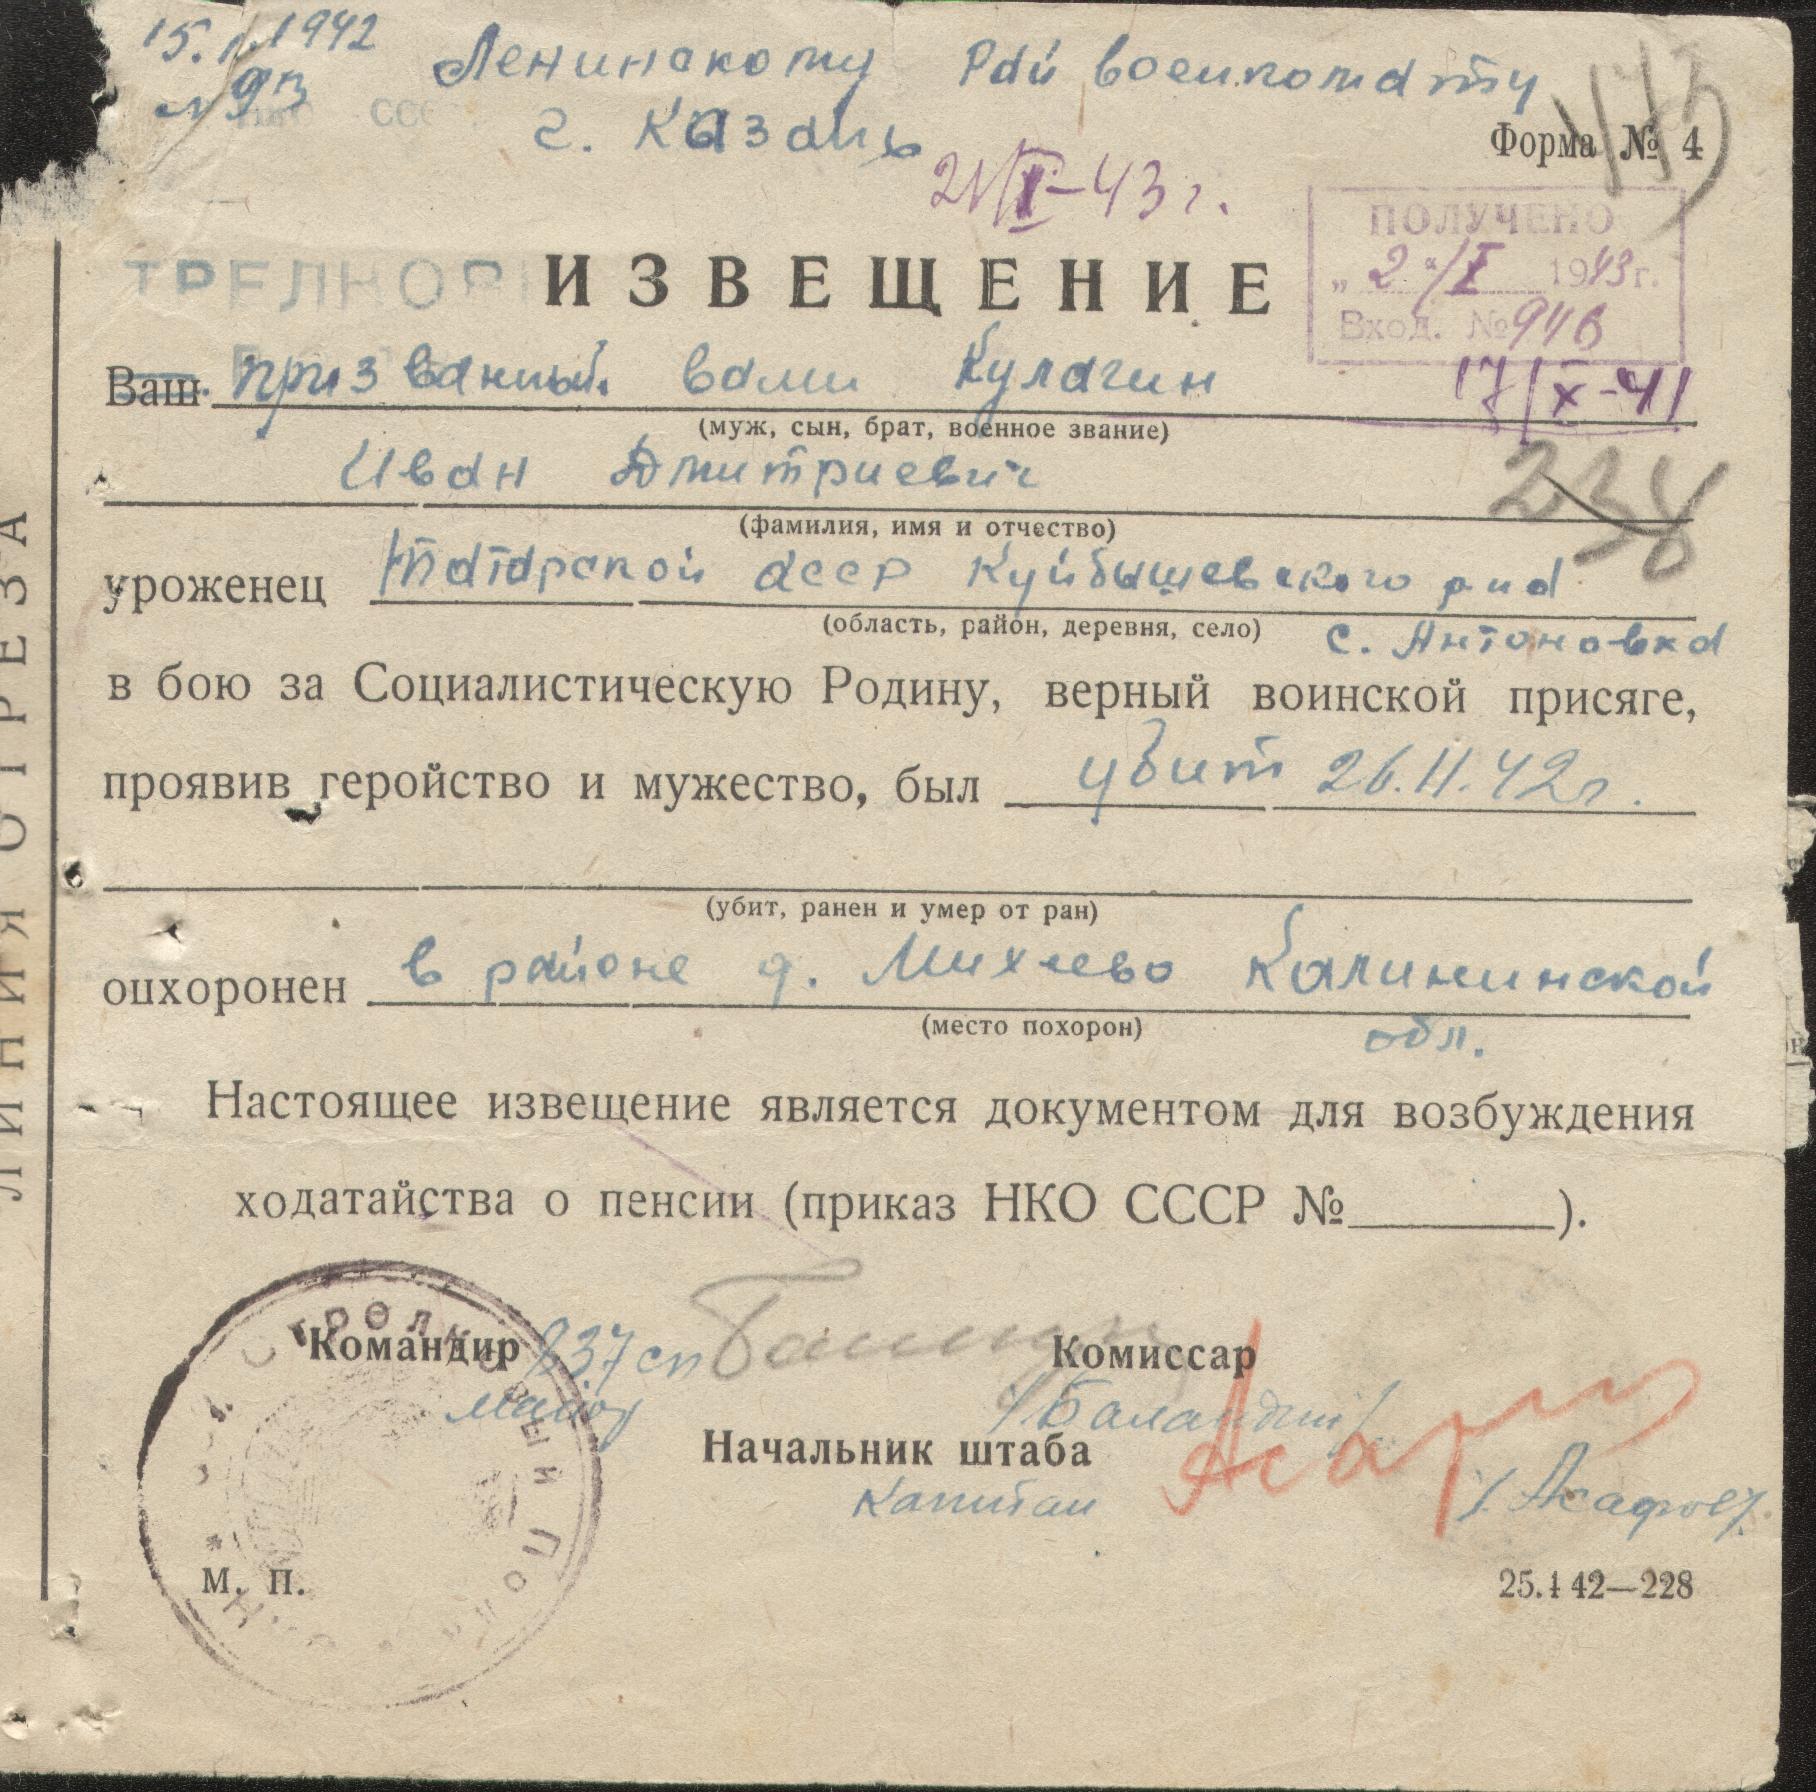 15.1.1942
Ленинскому Рай военкомату
г. Казань
Форма № 4
21/I-43 г.
ПОЛУЧЕНО
„2“/I 1943 г.
Вход. № 946
ТРЕЛКОВ
ИЗВЕЩЕНИЕ
Ваш призванный вами Кулагин
17/X-41
(муж, сын, брат, военное звание)
Иван Дмитриевич
238
(фамилия, имя и отчество)
уроженец Татарской АССР Куйбышевского р-на
(область, район, деревня, село) с. Антоновка
в бою за Социалистическую Родину, верный воинской присяге,
проявив геройство и мужество, был убит 26.11.42 г.
(убит, ранен и умер от ран)
опхоронен в районе д. Михеево Калининской
(место похорон) обл.
Настоящее извещение является документом для возбуждения
ходатайства о пенсии (приказ НКО СССР №        ).
Командир 837 сп Комиссар
майор /Баландин/
Начальник штаба
капитан /Асафов/
М. П.
25.1 42—228
ЛИНИЯ ОТРЕЗА